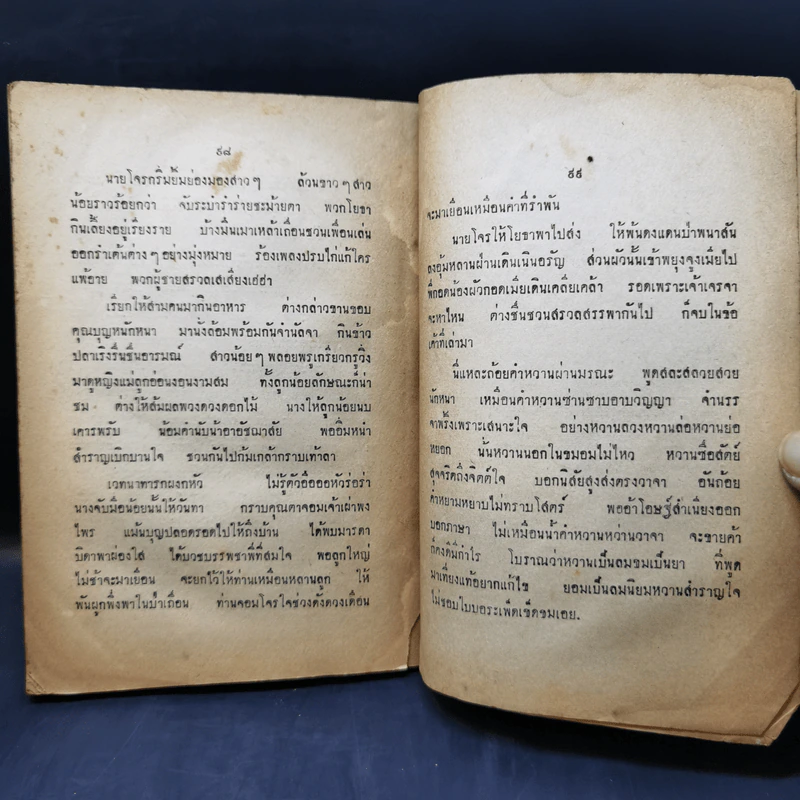 ๙๘
นายโจรกริ่มยิ้มย่องมองสาวๆ ล้วนขาวๆสาว
น้อยราวร้อยกว่า จับระบำรำร่ายชะม้ายตา พวกโยธา
กินเลี้ยงอยู่เรียงราย บ้างมึนเมาเหล้าเถื่อนชวนเพื่อนเล่น
ออกรำเต้นต่างๆอย่างมุ่งหมาย ร้องเพลงปรบไก่แก้ใคร
แพ้อาย พวกผู้ชายสรวลเสเสียงเฮฮา
เรียกให้สามคนมากินอาหาร ต่างกล่าวขานขอบ
คุณบุญหนักหนา มานั่งล้อมพร้อมกันจำนัลจา กินข้าว
ปลาเริงรื่นชื่นอารมณ์ สาวน้อยๆพลอยพรูเกรียวกรูวิ่ง
มาดูหญิงแม่ลูกอ่อนงอนงามสม ทั้งลูกน้อยลักษณะก็น่า
ชม ต่างให้ส้มผลพวงดวงดอกไม้ นางให้ลูกน้อยนบ
เคารพรับ น้อมคำนับน้าอาอัชฌาสัย พออิ่มหนำ
สำราญเบิกบานใจ ชวนกันไปก้มเกล้ากราบเท้าลา
เวทนาทารกผงกหัว ไม่รู้ตัวอือออหัวร่อร่า
นางจับมือน้อยนั้นให้วันทา กราบคุณตาจอมเจ้าเผ่าพง
ไพร แม้นบุญปลอดรอดไปให้ถึงบ้าน ได้พบมารดา
บิดาพาผ่องใส ได้บวชบรรพชาพี่ที่สมใจ พอลูกใหญ่
ไม่ช้าจะมาเยือน จะยกไว้ให้ท่านเหมือนหลานลูก ให้
พันผูกพึ่งพาในป่าเถื่อน ท่านจอมโจรใจช่วงดั่งดวงเดือน
๙๙
จะมาเยือนเหมือนคำที่รำพัน
นายโจรให้โยธาพาไปส่ง ให้พ้นดงแดนป่าพนาสัน
ลงอุ้มหลานผ่านเดินเนินอรัญ ส่วนผัวนั้นเข้าพยุงจูงเมียไป
พี่กอดน้องผัวกอดเมียเดินเคลียเคล้า รอดเพราะเจ้าเจรจา
จะหาไหน ต่างชื่นชวนสรวลสรรพากันไป ก็จบในข้อ
เค้าที่เล่ามา
นี่และถ้อยคำหวานผ่านมรณะ พูดสละสลวยสวย
นักหนา เหมือนคำหวานซ่านซาบอาบวิญญา จำนรร
จาพริ้งเพราะเสนาะใจ อย่างหวานลวงหวานล่อหวานย่อ
หยอก นั้นหวานนอกในขมอมไม่ไหว หวานซื่อสัตย์
สุจริตถึงจิตต์ใจ บอกนิสัยสูงส่งตรงวาจา อันถ้อย
คำหยามหยาบไม่ทราบโสตร์ พออ้าโอษฐ์สำเนียงออก
บอกภาษา ไม่เหมือนน้ำคำหวานหว่านวาจา จะขายค้า
ก็คงดีมีกำไร โบราณว่าหวานเป็นลมขมเป็นยา ที่พูด
มาเที่ยงแท้อยากแก้ไข ยอมเป็นลมนิยมหวานสำราญใจ
ไม่ชอบใบบอระเพ็ดเข็ดขมเอย.